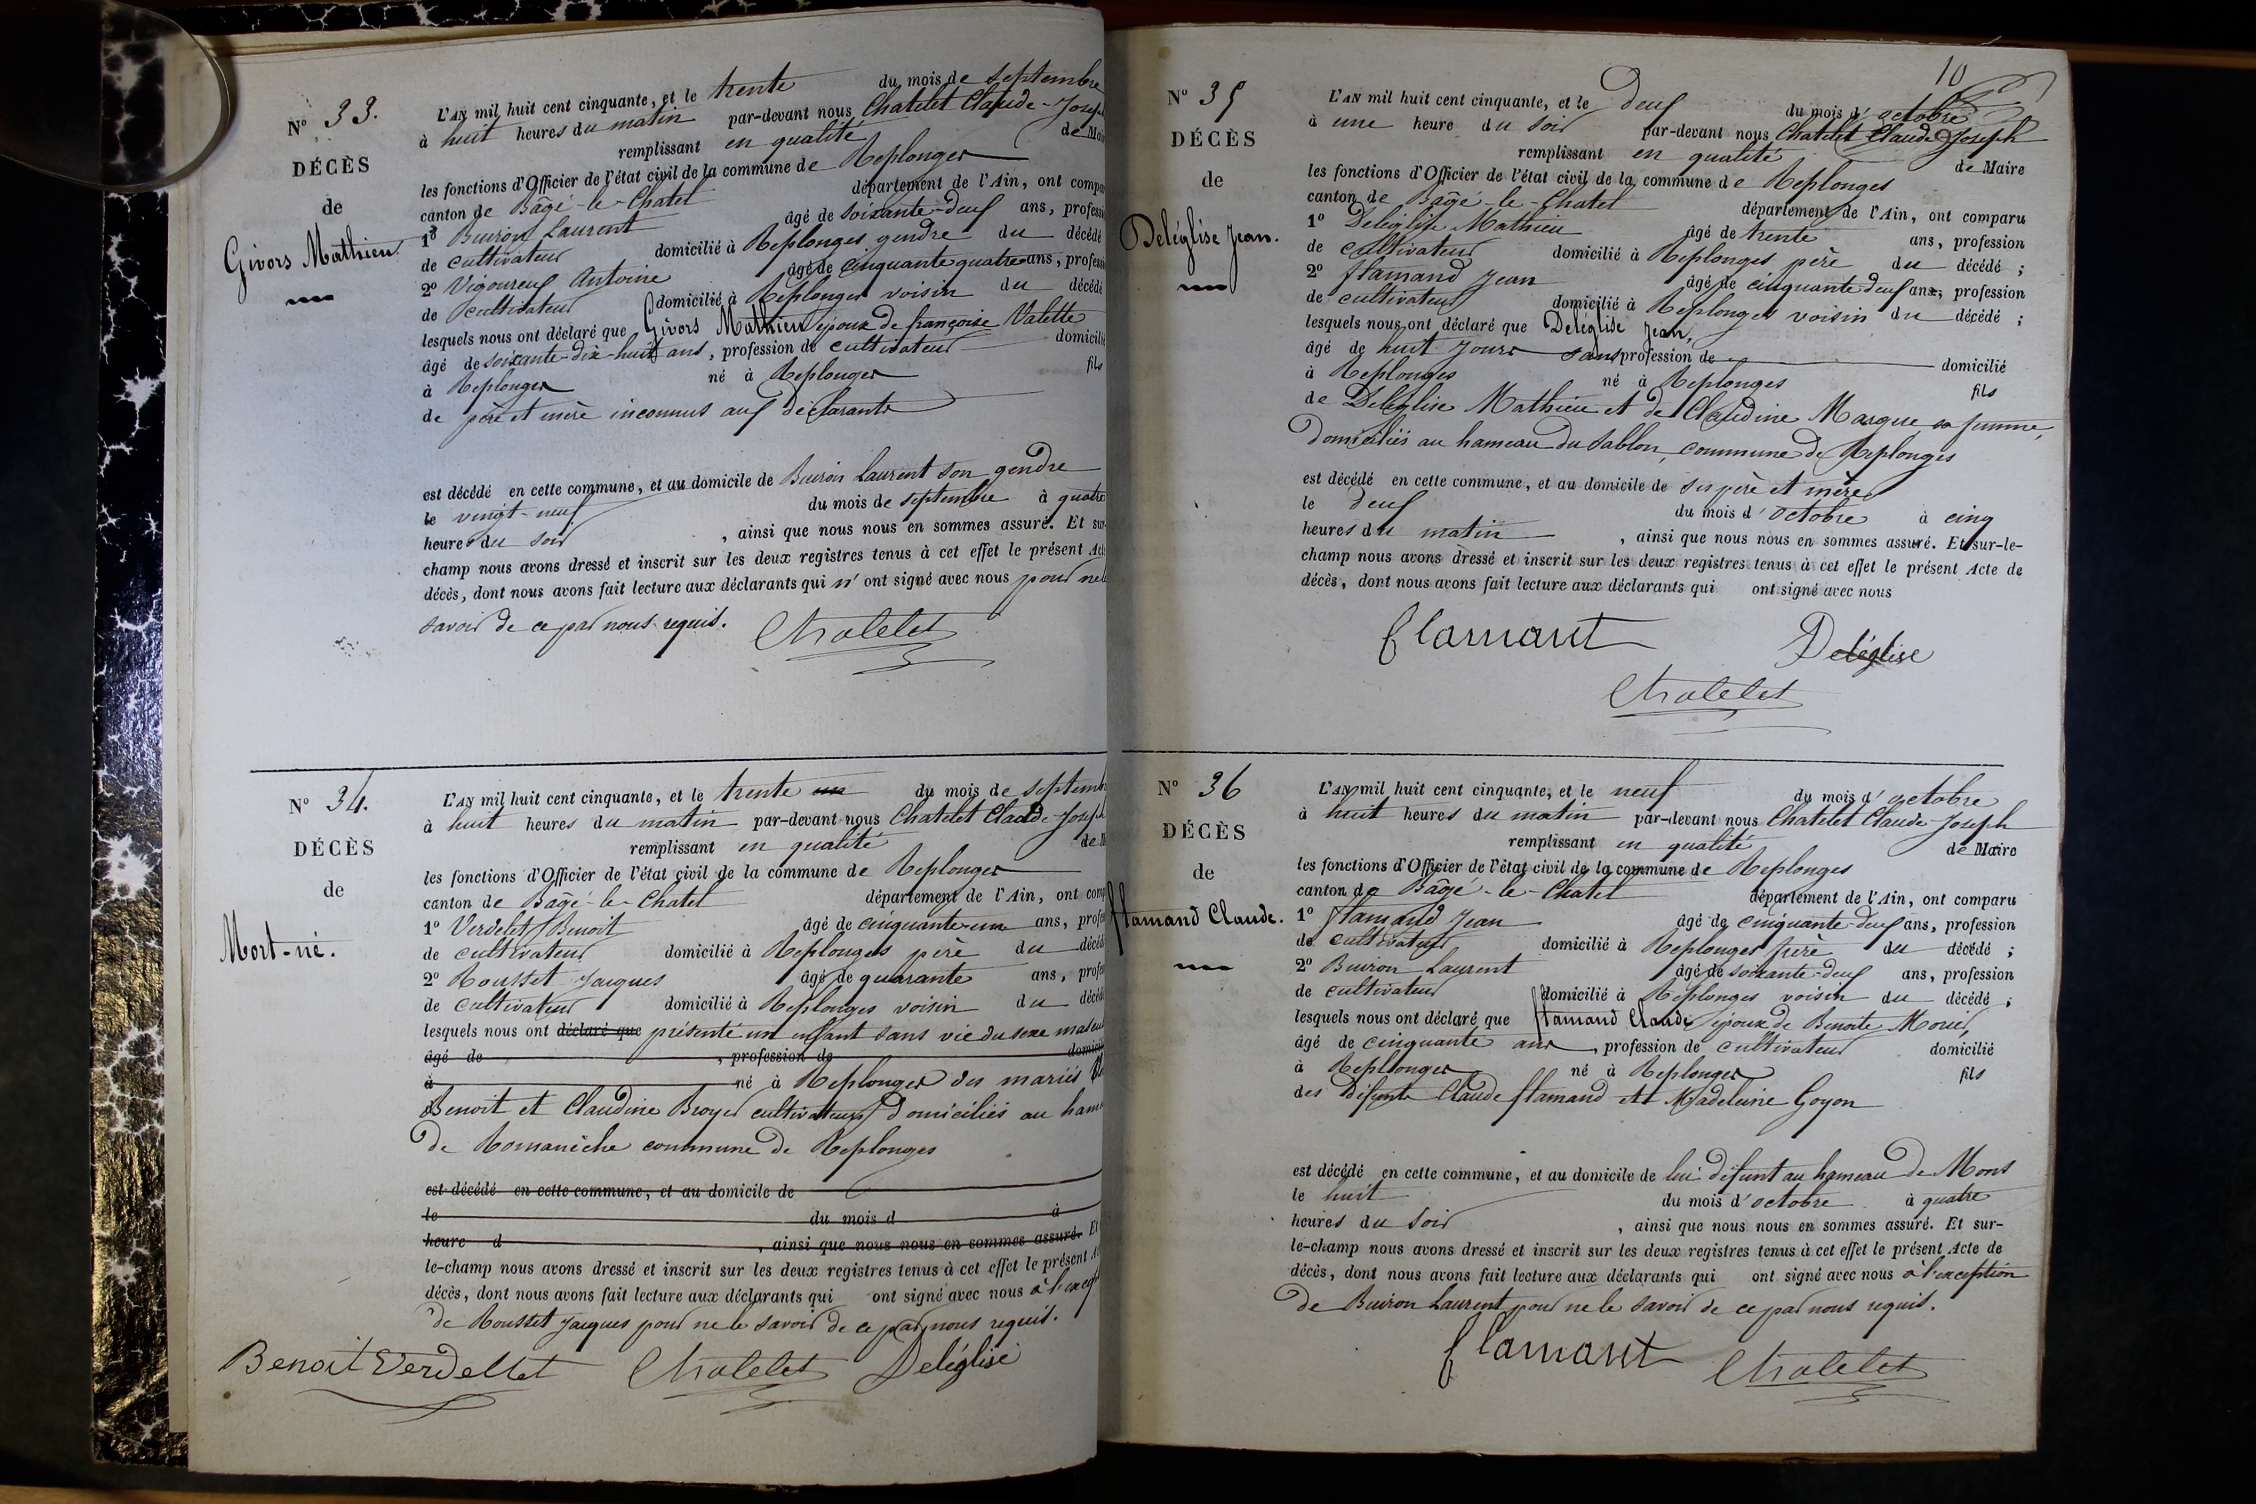 N° 33.
DÉCÈS
de
Givors Mathieu.
L'AN mil huit cent cinquante, et le trente du mois de septembre
à huit heures du matin par-devant nous Chatelet Claude-Joseph
remplissant en qualité de Mai
les fonctions d'Officier de l'état civil de la commune de Replonges
canton de Bâgé-le-Chatel département de l'Ain, ont compa
1° Buiron Laurent âgé de soixante-deux ans, professi
de cultivateur domicilié à Replonges gendre du décédé
2° Vigoureux Antoine âgé de cinquante quatre ans, profess
de cultivateur domicilié à Replonges voisin du décédé
lesquels nous ont déclaré que Givors Mathieu époux de françoise Valette
âgé de soixante-dix-huit ans, profession de cultivateur domicilié
à Replonges né à Replonges fils
de père et mère inconnus aux déclarants
est décédé en cette commune, et au domicile de Buiron Laurent son gendre
le vingt-neuf du mois de septembre à quatre
heures du soir, ainsi que nous nous en sommes assuré. Et sur-
champ nous avons dressé et inscrit sur les deux registres tenus à cet effet le présent Acte
décès, dont nous avons fait lecture aux déclarants qui n'ont signé avec nous pour ne le
savoir de ce par nous requis. Chatelet
N° 34.
DÉCÈS
de
Mort-né.
L'AN mil huit cent cinquante, et le trente un du mois de septemb
à huit heures du matin par-devant nous Chatelet Claude-Joseph
remplissant en qualité de M
les fonctions d'Officier de l'état civil de la commune de Replonges
canton de Bâgé-le-Chatel département de l'Ain, ont comp
1° Verdelet Benoit âgé de cinquante-un ans, profes
de cultivateur domicilié à Replonges père du décédé
2° Rousset Jacques âgé de quarante ans, profes
de cultivateur domicilié à Replonges voisin du décédé
lesquels nous ont déclaré que présenté un enfant sans vie du sexe mascul
âgé de , profession de domicilié
à né à Replonges des mariés
Benoit et Claudine Broyer cultivateurs domiciliés au hame
de Romanèche commune de Replonges
est décédé en cette commune, et au domicile de
le du mois d à
heure d , ainsi que nous nous en sommes assuré. Et
le-champ nous avons dressé et inscrit sur les deux registres tenus à cet effet le présent A
décès, dont nous avons fait lecture aux déclarants qui ont signé avec nous à l'excep
de Rousset Jacques pour ne le savoir de ce par nous requis.
Benoit Verdellet Chatelet Deléglise
10
N° 35
DÉCÈS
de
Deléglise Jean.
L'AN mil huit cent cinquante, et le deux du mois d'octobre
à une heure du soir par-devant nous Chatelet Claude Joseph
remplissant en qualité de Maire
les fonctions d'Officier de l'état civil de la commune de Replonges
canton de Bâgé-le-Chatel département de l'Ain, ont comparu
1° Deléglise Mathieu âgé de trente ans, profession
de cultivateur domicilié à Replonges père du décédé ;
2° flamand Jean âgé de cinquante deux ans, profession
de cultivateur domicilié à Replonges voisin du décédé ;
lesquels nous ont déclaré que Deléglise Jean,
âgé de huit jours sans profession de domicilié
à Replonges né à Replonges fils
de Deléglise Mathieu et de Claudine Marque sa femme,
domiciliés au hameau du Sablon, commune de Replonges
est décédé en cette commune, et au domicile de ses père et mère
le deux du mois d'octobre à cinq
heures du matin, ainsi que nous nous en sommes assuré. Et sur-le-
champ nous avons dressé et inscrit sur les deux registres tenus à cet effet le présent Acte de
décès, dont nous avons fait lecture aux déclarants qui ont signé avec nous
flamant Deléglise
Chatelet
N° 36
DÉCÈS
de
flamand Claude.
L'AN mil huit cent cinquante, et le neuf du mois d'octobre
à huit heures du matin par-devant nous Chatelet Claude-Joseph
remplissant en qualité de Maire
les fonctions d'Officier de l'état civil de la commune de Replonges
canton de Bâgé-le-Chatel département de l'Ain, ont comparu
1° flamand Jean âgé de cinquante-deux ans, profession
de cultivateur domicilié à Replonges frère du décédé ;
2° Buiron Laurent âgé de soixante-deux ans, profession
de cultivateur domicilié à Replonges voisin du décédé ;
lesquels nous ont déclaré que flamand Claude époux de Benoite
âgé de cinquante ans, profession de cultivateur domicilié
à Replonges né à Replonges fils
des défunts Claude flamand et Madeleine Goyon
est décédé en cette commune, et au domicile de lui défunt au hameau de Mons
le huit du mois d'octobre à quatre
heures du soir, ainsi que nous nous en sommes assuré. Et sur-
le-champ nous avons dressé et inscrit sur les deux registres tenus à cet effet le présent Acte de
décès, dont nous avons fait lecture aux déclarants qui ont signé avec nous à l'exception
de Buiron Laurent pour ne le savoir de ce par nous requis.
flamant Chatelet